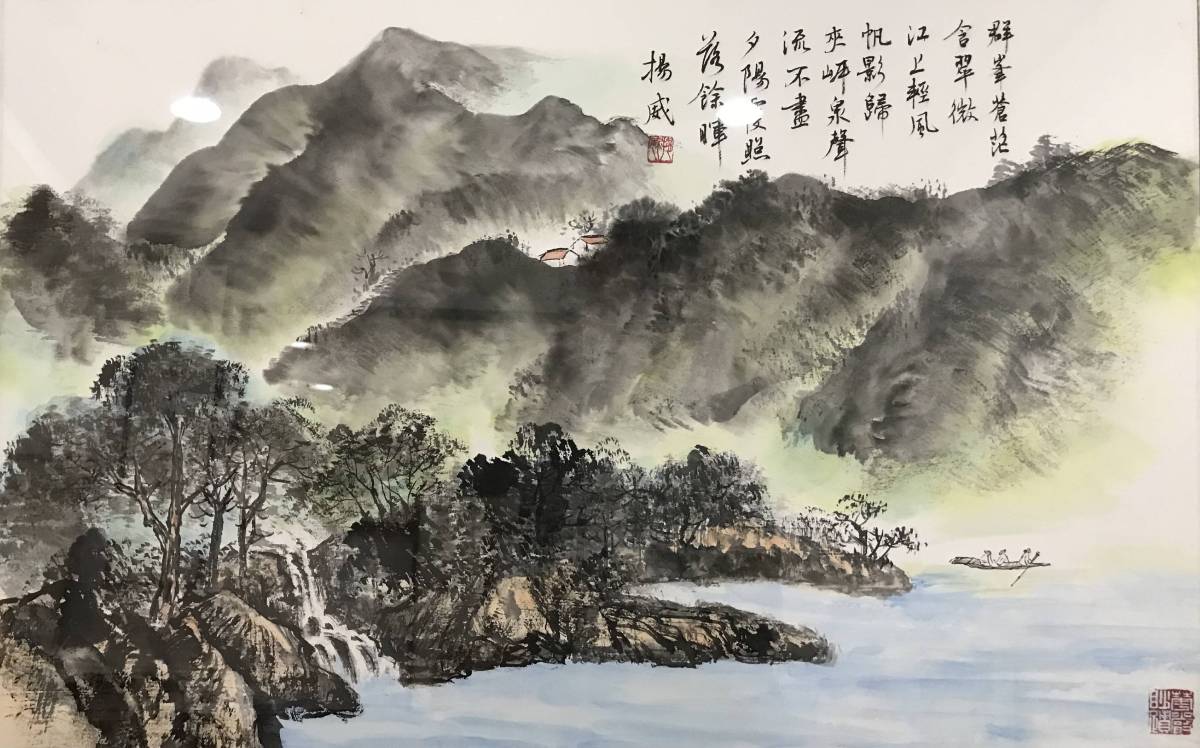 群峯蒼茫
含翠微
江上輕風
帆影歸
夾岸泉聲
流不盡
夕陽霞照
落餘暉
揚威